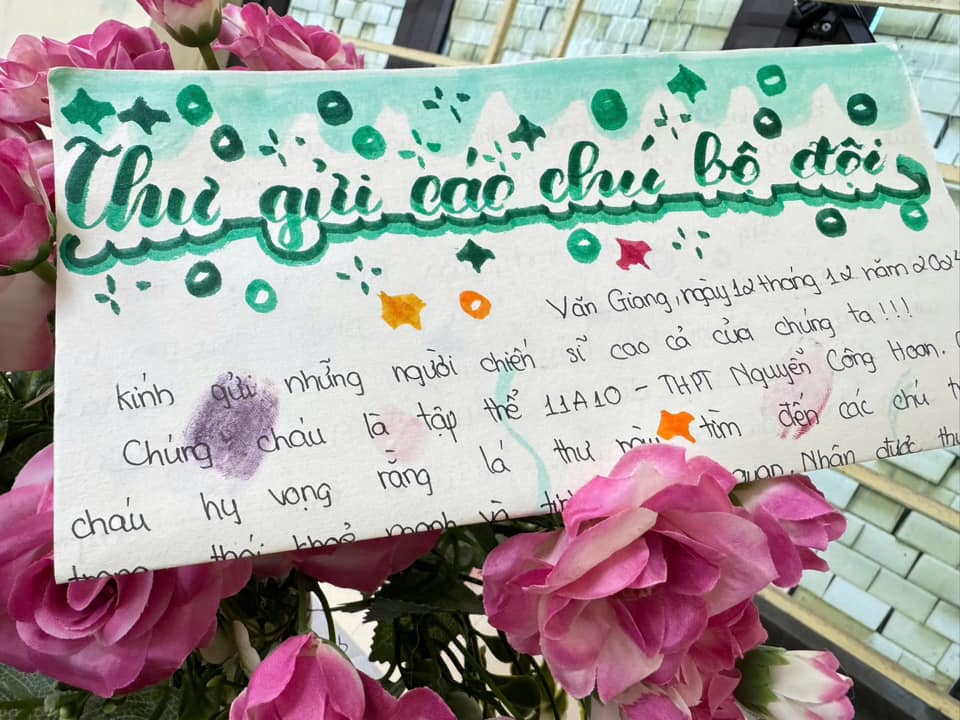 Thư gửi các chú bộ đội
Văn Giang, ngày 12 tháng 12 năm 202
kính gửi những người chiến sĩ cao cả của chúng ta!!!
Chúng cháu là tập thể 11A10 - THPT Nguyễn Công Hoan.
cháu hy vọng rằng lá thư này tìm đến các chú
trong thái khoẻ mạnh và quan. Nhận được